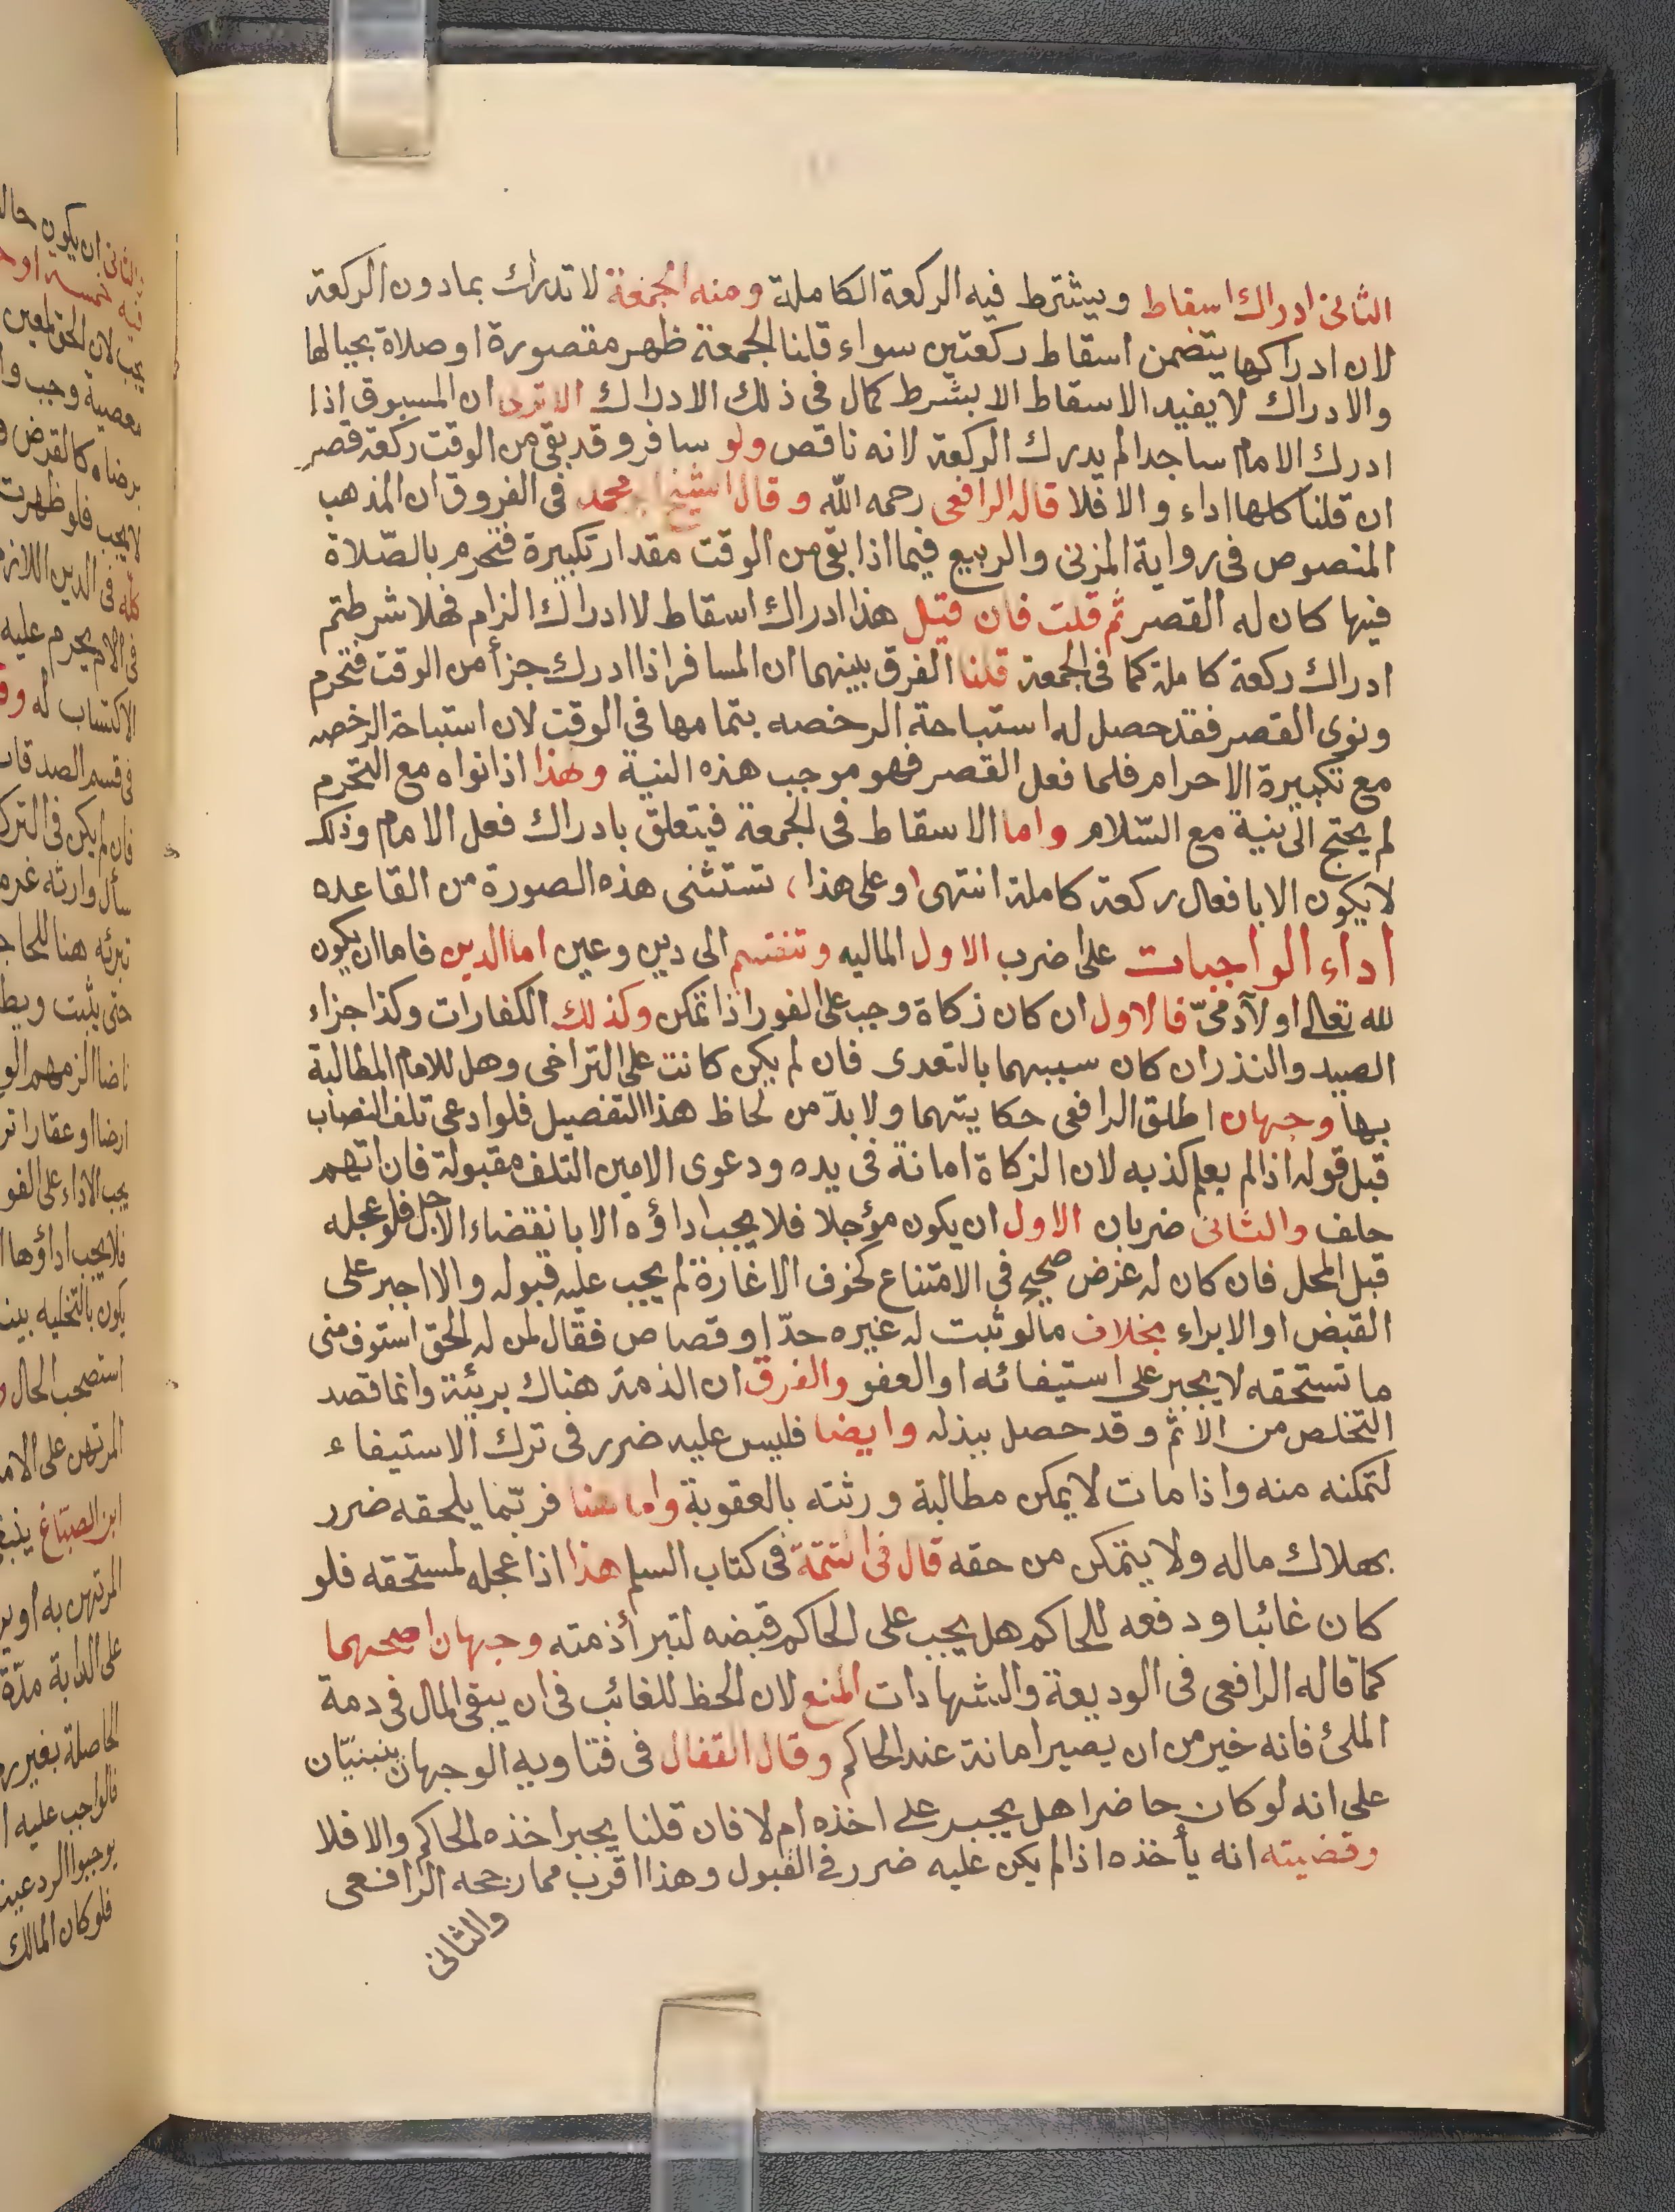 الثانى ادراك اسقاط ويشترط فيه الركعة الكاملة ومنه الجمعة لا تدرك بمادون الركعة
لان ادراكها يتضمن اسقاط ركعتين سواء قلنا الجمعة ظهر مقصورة او صلاة بحيالها
والادراك لا يفيد الاسقاط الا بشرط كمال فى ذلك الادراك الا ترى ان المسبوق اذا
ادرك الامام ساجدا لم يدرك الركعة لانه ناقص ولو سافر وقد بقى من الوقت ركعة قصر
ان قلنا كلها اداء والا فلا قاله الرافعى رحمه الله وقال الشيخ ابو محمد فى الفروق ان المذهب
المنصوص فى رواية المزنى والربيع فيما اذا بقى من الوقت مقدار تكبيرة فتحرم بالصّلاة
فيها كان له القصر ثم قلت فان قيل هذا ادراك اسقاط لا ادراك الزام فهلا شرطتم
ادراك ركعة كاملة كما فى الجمعة قلنا الفرق بينهما ان المسافر اذا ادرك جزأ من الوقت فتحرم
ونوى القصر فقد حصل له استباحة الرخصه بتمامها فى الوقت لان استباحة الرخصه
مع تكبيرة الاحرام فلما فعل القصر فهو موجب هذه النية ولهذا اذا نواه مع التحرم
لم يحتج الى نية مع السّلام واما الاسقاط فى الجمعة فيتعلق بادراك فعل الامام وذلك
لا يكون الا بافعال ركعة كاملة انتهى وعلى هذا، تستثنى هذه الصورة من القاعده
اداء الواجبات على اضرب الاول الماليه وتنقسم الى دين وعين اما الدين فاما ان يكون
لله تعالى او لآدمىّ فالاول ان كان زكاة وجب على الفور اذا تمكن وكذلك الكفارات وكذا جزاء
الصيد والنذر ان كان سببهما بالتعدى فان لم يكن كانت على التراخى وهل للامام المطالبة
بها وجهان اطلق الرافعى حكايتهما ولا بدّ من لحاظ هذا التفصيل فلو ادعى تلف النصاب
قبل قوله اذا لم يعلم كذبه لان الزكاة امانة فى يده ودعوى الامين التلف مقبولة فان اتهم
حلف والثانى ضربان الاول ان يكون مؤجلا فلا يجب اداؤه الا بانقضاء الاجل فلو عجله
قبل المحل فان كان له غرض صحيح فى الامتناع كخوف الاغارة لم يجب عليه قبوله والا اجبر على
القبض او الابراء بخلاف ما لو ثبت له غيره حدّ او قصاص فقال لمن له الحق استوف منى
ما تستحقه لا يجبر على استيفائه او العفو والفرق ان الذمة هناك بريئة وانما قصد
التخلص من الاثم وقد حصل ببذله وايضا فليس عليه ضرر فى ترك الاستيفاء
لتمكنه منه واذا مات لا يمكن مطالبة ورثته بالعقوبة واما هنا فربّما يلحقه ضرر
بهلاك ماله ولا يتمكن من حقه قال فى التتمة فى كتاب السلم هذا اذا عجله لمستحقه فلو
كان غائبا ودفعه للحاكم هل يجب على الحاكم قبضه لتبرأ ذمته وجهان اصحهما
كما قاله الرافعى فى الوديعة والشهادات المنع لان الحظ للغائب فى ان يبقى المال فى دمة
الملئ فانه خير من ان يصير امانة عند الحاكم وقال القفال فى فتاويه الوجهان ينبنيّان
على انه لو كان حاضرا هل يجبر على اخذه ام لا فان قلنا يجبر اخذه الحاكم والا فلا
وقضيته انه يأخذه اذا لم يكن عليه ضرر فى القبول وهذا اقرب مما رجحه الرافعى
والثانى